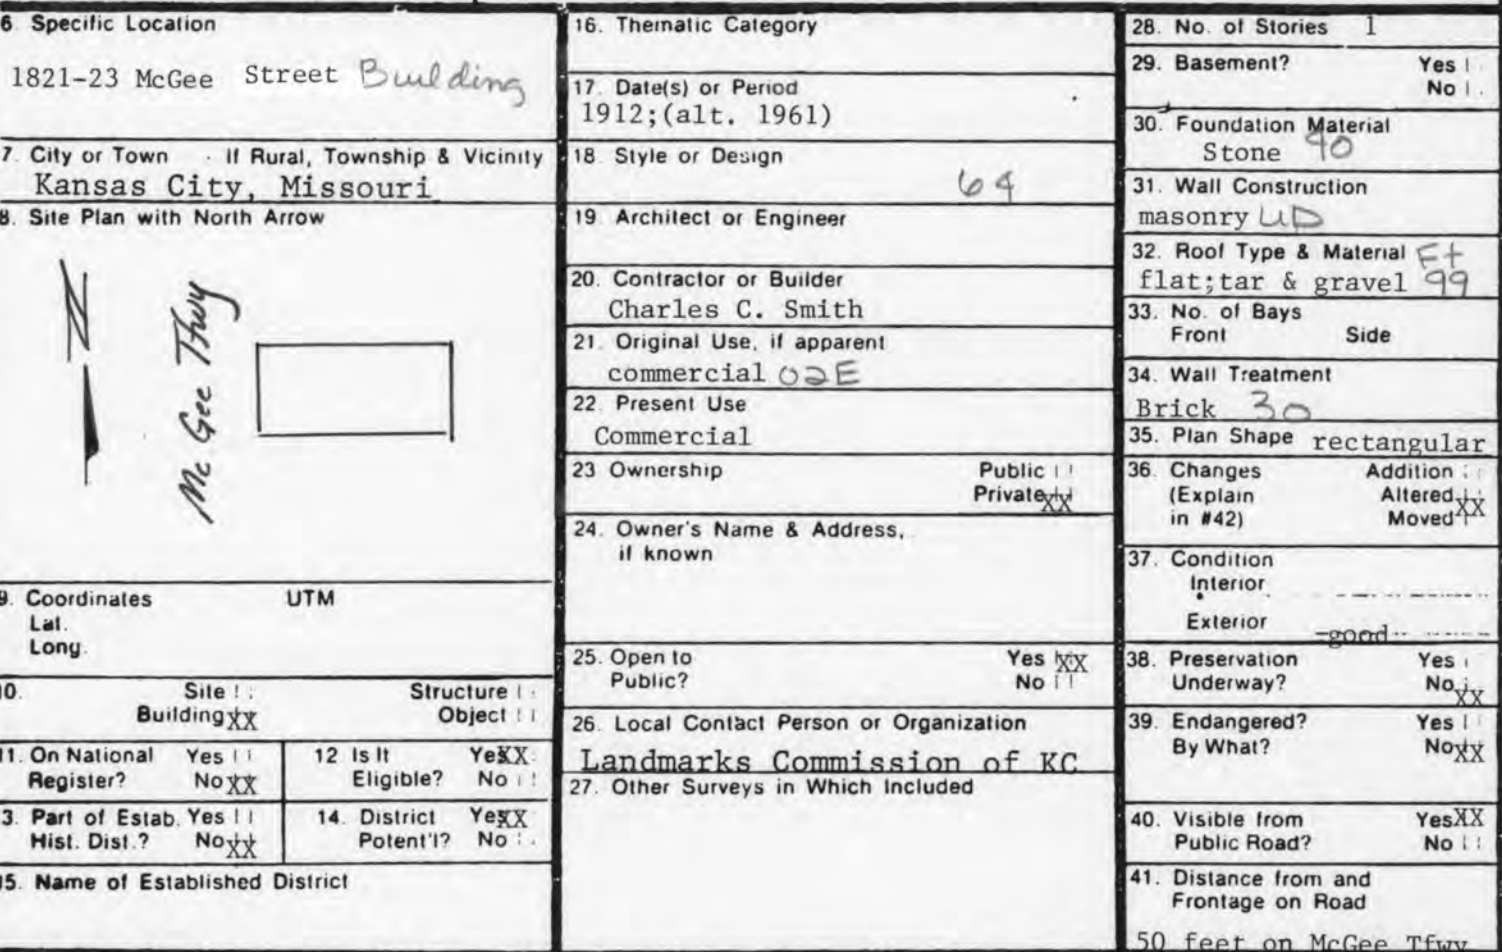 6. Specific Location
1821-23 McGee Street Building
7. City or Town If Rural, Township & Vicinity
Kansas City, Missouri
8. Site Plan with North Arrow
N
Mc Gee Tfwy
9. Coordinates UTM
Lat.
Long.
10. Site Structure
Building XX Object
11. On National Yes
Register? No XX
12 Is It Yes XX
Eligible? No
13. Part of Estab. Yes
Hist. Dist.? No XX
14. District Yes XX
Potent'l? No
15. Name of Established District
16. Thematic Category
17. Date(s) or Period
1912;(alt. 1961)
18. Style or Design
64
19. Architect or Engineer
20. Contractor or Builder
Charles C. Smith
21. Original Use, if apparent
commercial 02E
22. Present Use
Commercial
23 Ownership Public
Private XX
24. Owner's Name & Address,
if known
25. Open to Yes XX
Public? No
26. Local Contact Person or Organization
Landmarks Commission of KC
27. Other Surveys in Which Included
28. No. of Stories 1
29. Basement? Yes
No
30. Foundation Material
Stone 40
31. Wall Construction
masonry UD
32. Roof Type & Material Ft
flat;tar & gravel 99
33. No. of Bays
Front Side
34. Wall Treatment
Brick 30
35. Plan Shape rectangular
36. Changes Addition
(Explain Altered XX
in #42) Moved
37. Condition
Interior
Exterior good
38. Preservation Yes
Underway? No XX
39. Endangered? Yes
By What? No XX
40. Visible from Yes XX
Public Road? No
41. Distance from and
Frontage on Road
50 feet on McGee Tfwy